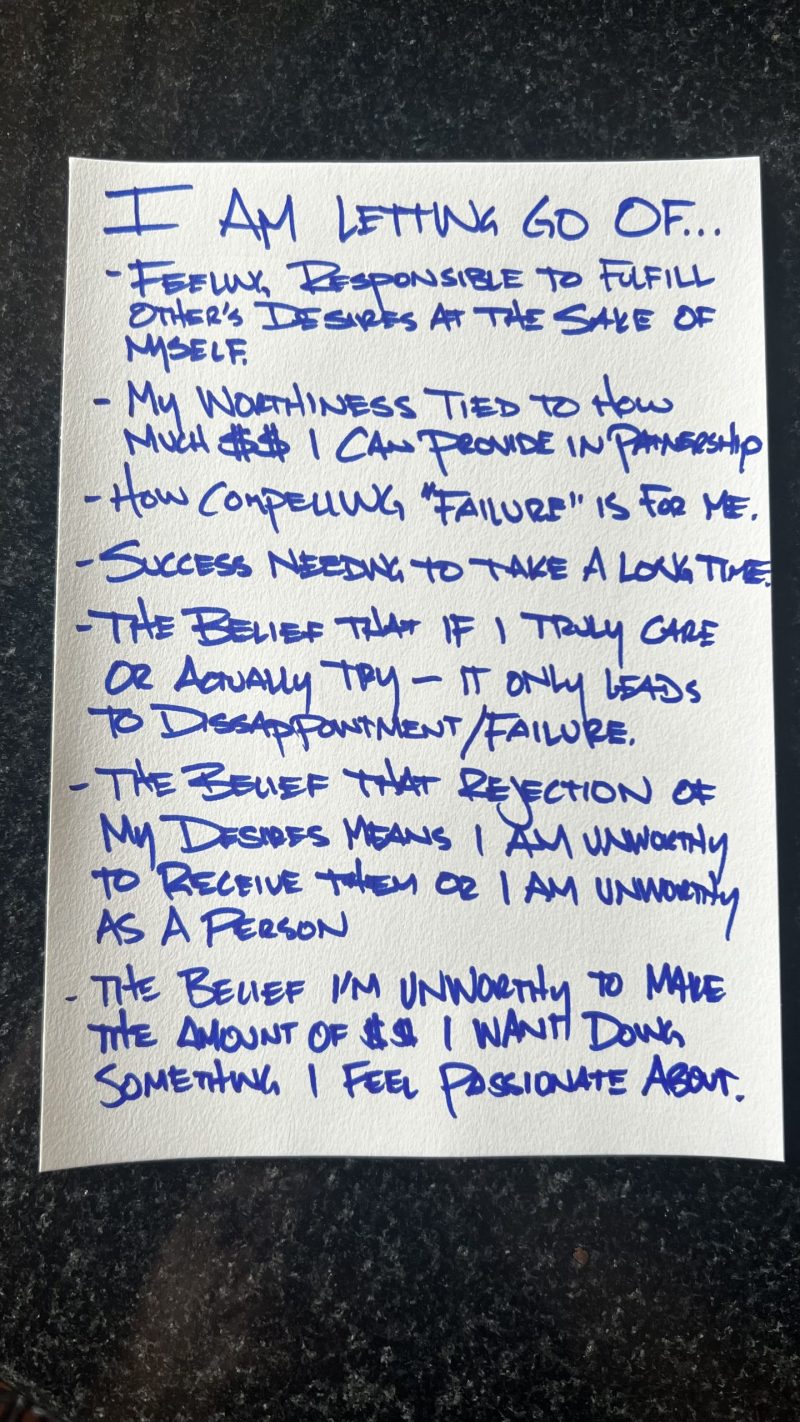 I AM LETTING GO OF...
- FEELING RESPONSIBLE TO FULFILL
OTHER'S DESIRES AT THE SAKE OF
MYSELF.
- MY WORTHINESS TIED TO HOW
MUCH $$ I CAN PROVIDE IN PATNERSHIP
- HOW COMPELLING "FAILURE" IS FOR ME.
- SUCCESS NEEDING TO TAKE A LONG TIME.
- THE BELIEF THAT IF I TRULY CARE
OR ACTUALLY TRY - IT ONLY LEADS
TO DISSAPPOINTMENT/FAILURE.
- THE BELIEF THAT REJECTION OF
MY DESIRES MEANS I AM UNWORTHY
TO RECEIVE THEM OR I AM UNWORTHY
AS A PERSON
- THE BELIEF I'M UNWORTHY TO MAKE
THE AMOUNT OF $$ I WANT DOING
SOMETHING I FEEL PASSIONATE ABOUT.